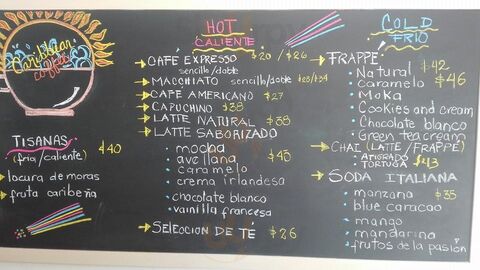 Caribbean
coffee
TISANAS
(fria/caliente) $40
locura de moras
fruta caribeña
HOT
CALIENTE
CAFÉ EXPRESSO $20/$26
sencillo/doble
MACCHIATO sencillo/doble
CAFÉ AMERICANO $27
CAPUCHINO $38
LATTE NATURAL $38
LATTE SABORIZADO
mocha
avellana $43
caramelo
crema irlandesa
chocolate blanco
vainilla francesa
SELECCION DE TÉ $26
COLD
FRÍO
FRAPPÉ
Natural $42
Caramelo $46
Moka
Cookies and cream
Chocolate blanco
Green tea cream
CHAI (LATTE / FRAPPE)
TORTUGA $43
SODA ITALIANA
manzana $35
blue caracao
mango
mandarina
frutos de la pasión